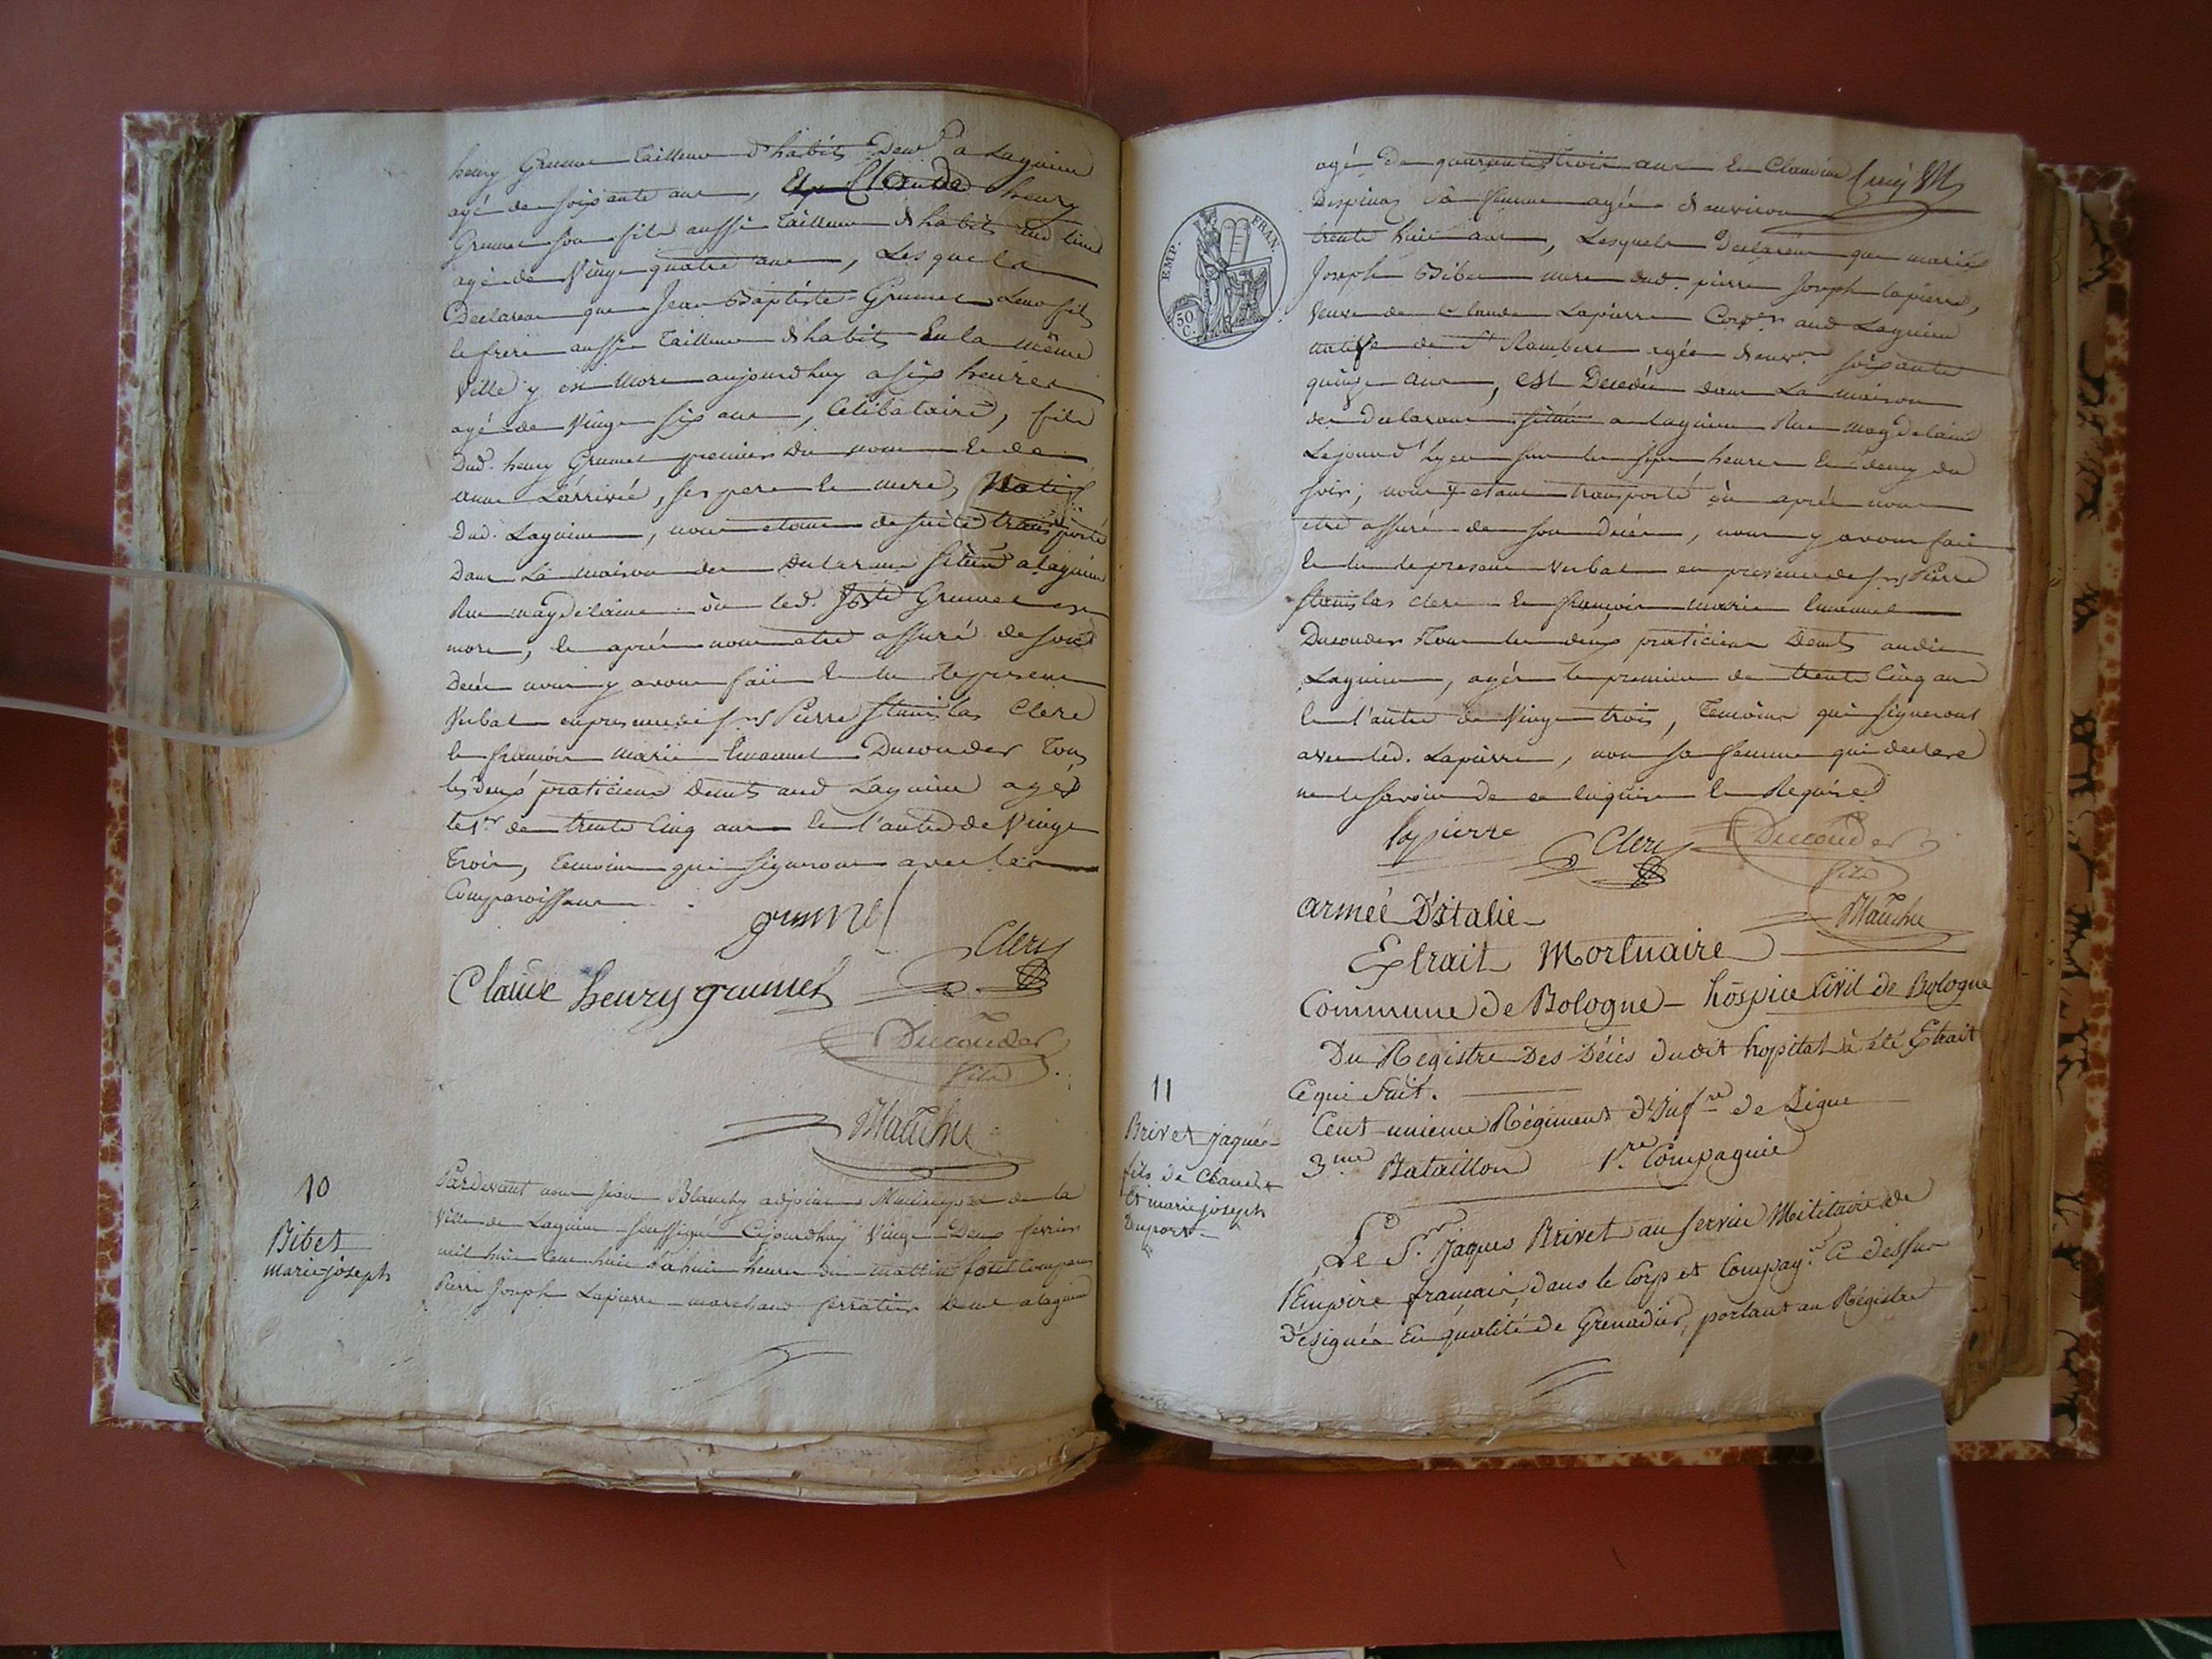 henry Grumet tailleur d'habits Demt a Lagnieu
agé de soixante ans, Et Claude henry
Grumet son fils aussi tailleur d'habits aud lieu
agé de Vingt quatre ans, Lesquels
Declarent que Jean Baptiste Grumet Leur fils
et frere aussi tailleur d'habits En la même
Ville y est mort aujourdhuy a six heures
agé de Vingt six ans, Celibataire, fils
Dud. henry Grumet premier du nom et de
anne Larrivée, ses pere et mere, Natif
Dud. Lagnieu, nous etant de suite transporté
Dans La maison des Declarans située a lagnieu
Rue magdelaine où led. Jean Bte Grumet est
mort, et aprés nous etre assuré de son
Decès nous y avons fait et lu le present
Verbal en presence de srs Pierre Stanislas Clerc
et françois marie Emanuel Ducouder Tous
les deux praticiens Demts aud Lagnieu agés
le 1er de trente Cinq ans et l'autre de Vingt
Trois, temoins qui signeront avec les
Comparoissans
grumet
Clerc
Claude henry grumet
Ducouder
fils
10
Bibet
marie joseph
Pardevant nous Blanchy adjoint Municipal de la
Ville de Lagnieu soussigné Cejourdhuy Vingt Deux fevrier
mil huit Cent huit à huit heures du mattin sont Comparus
Pierre Joseph Lapierre marchand ferratier Demt a lagnieu
EMP. FRAN.
50 C.
agé de quarante trois ans et Claudine
Despinas sa femme agée d'environ
trente huit ans, Lesquels Declarent que marie
Joseph Bibet mere dud. pierre Joseph lapierre,
Veuve de Claude Lapierre aud Lagnieu
native de St Rambert agée d'environ soixante
quinze ans, est Decedée dans La maison
des declarans située a lagnieu Rue magdelaine
Lejourd'hyer sur les sept heures et demy du
soir, nous y etant transporté où aprés nous
etre assuré de son Decès, nous y avons fait
et lu le present verbal en presence de srs Pierre
Stanislas clerc et françois marie Emanuel
Ducouder Tous les deux praticiens Demts audit
Lagnieu, agés le premier de trente Cinq ans
et l'autre de Vingt trois, Temoins qui signeront
avec led. Lapierre, non sa femme qui declare
ne le savoir de ce enquise et Requise
lapierre
Clerc
Ducouder
fils
armée D'italie
Extrait Mortuaire
Commune de Bologne - hospice Civil de Bologne
Du Registre Des Décès dudit hopital à été Extrait
Ce qui suit.
11
Brivet jaques
fils de Claude
Et marie joseph
Cent unieme Régiment d'Inf.re de Ligne
3.me Bataillon 1.re Compagnie
Le S.r Jaques Brivet au service Militaire de
l'Empire français, dans le Corp et Compag.e Ci dessus
désignés En qualité de Grenadier, portant au Régistre